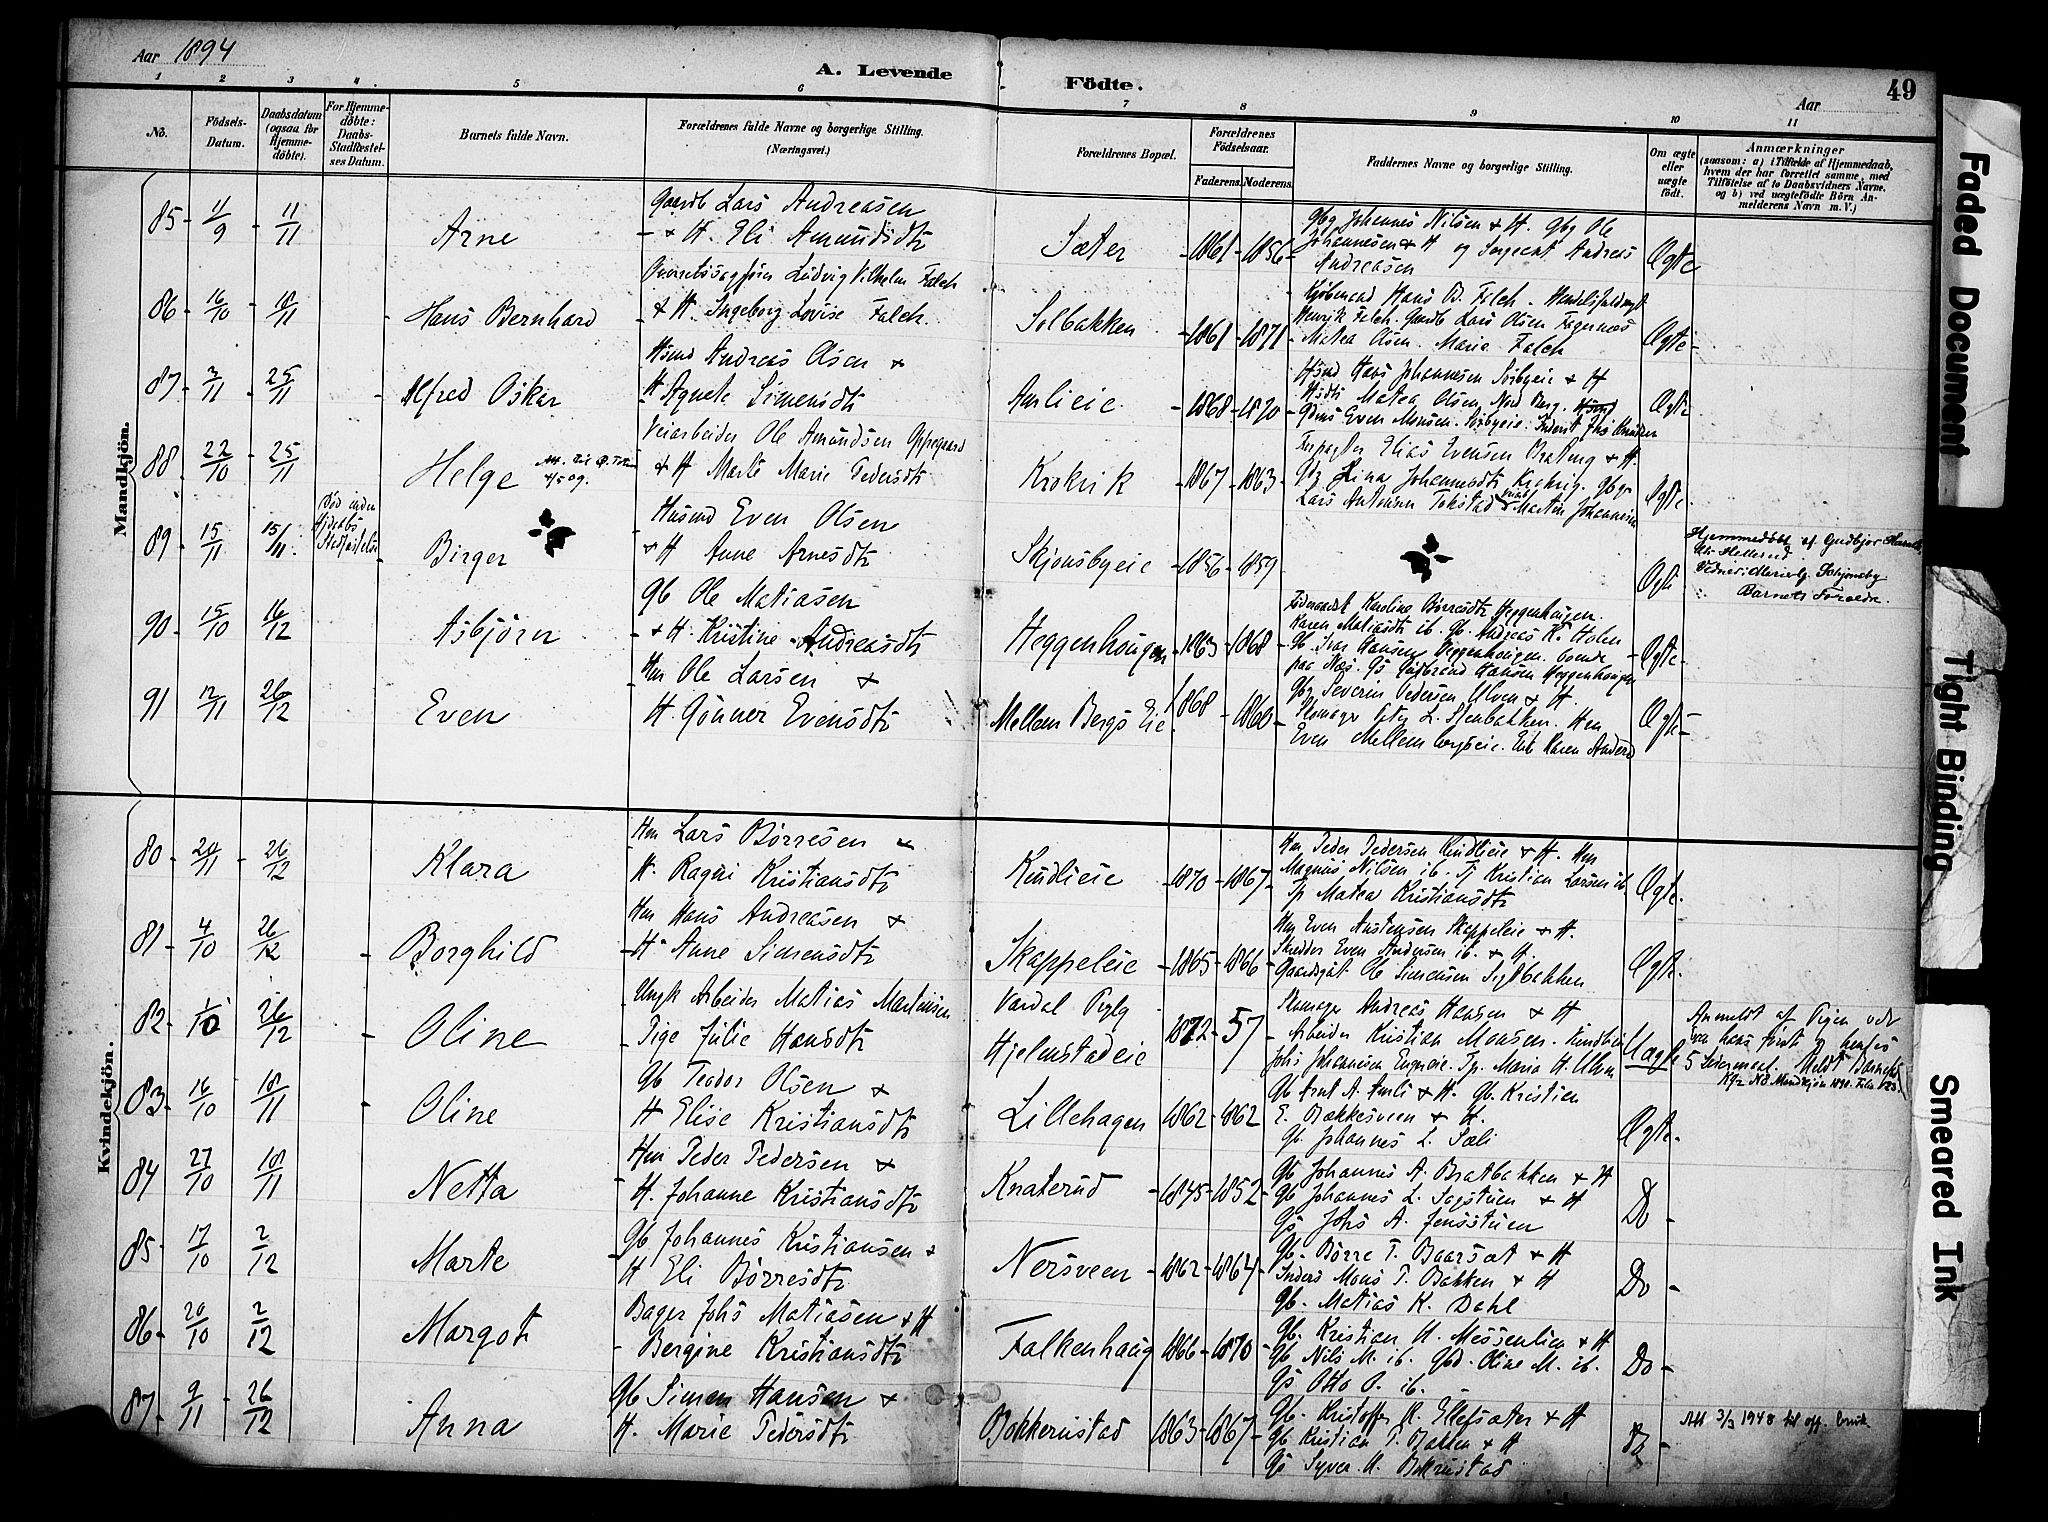 Aar 1894
A. Levende Födte.
49
Aar
1 2 3 4 5 6 7 8 9 10 11
No.
Födsels-Datum.
Daabsdatum (ogsaa for Hjemme-döbte).
For Hjemme-döbte: Daabs-Stadfæstel-ses Datum.
Barnets fulde Navn.
Forældrenes fulde Navne og borgerlige Stilling.
(Næringsvei.)
Forældrenes Bopæl.
Forældrenes Födselsaar.
Faderens. Moderens.
Faddernes Navne og borgerlige Stilling.
Om ægte eller uægte födt.
Anmærkninger
(saasom: a) i Tilfælde af Hjemmedaab, hvem der har forrettet samme, med Tilföielse af to Daabsvidners Navne, og b) ved uægtefödte Börn An-melderens Navn m. V.)
Mandkjön.
85 11/9 11/11 Arne
Gaardb Lars Andreasen
+ H. Eli Amundsdtr
Sæter 1861 1856
Gbg Johannes Nilsen + H. Gbg Ole
Johannesen + H og Sergeant Andreas
Andreasen
Ægte
86 16/10 18/11 Hans Bernhard
Overretssagfører Ludvig Vilhelm Falch
+ H. Ingeborg Lovise Falch.
Solbakken 1861 1871
Kjøbmand Hans B. Falch.
Henrik Falch. Gaardb Lars Olsen Fagernæs
Matea Olsen. Marie Falch
Ægte
87 3/11 25/11 Alfred Oskar
Hsmd Andreas Olsen +
H Agnete Simensdtr
Amlieie 1868 1870
Hsmd Hans Johannesen Sørbyeie + H
Matea Olsen Nord Berg.
Even Monsen Sørbyeie.
Ægte
88 22/10 25/11 Helge
Veiarbeider Ole Amundsen Oppegaard
+ H Marte Marie Pedersdtr
Krokvik 1867 1863
Forpagter Elias Evensen Brateng + H.
Lina Johannesdtr
Lars Antonsen Tokstad Martin Johannesen
Ægte
89 15/11 15/11
Død inden
Hjdaabs
Stadfæstelse
Birger
Husmd Even Olsen
+ H Anne Arnesdtr
Skjønsbyeie 1856 1859
Ægte
Hjemmedøbt af Gudbjør
Hellerud
Vidner: Skjønsby
Barnets Forældre.
90 15/10 16/12 Asbjørn
Gb Ole Matiasen
+ H. Kristine Andreasdtr
Heggenhougen 1863 1868
Karoline Børresdtr Heggenhougen.
Karen Matiasdtr ib. Gb. Andreas K. Holen
Gb. Ivar Hansen Heggenhougen. boende
paa Næs. Gs Gudbrand Hansen Heggenhougen
Ægte
91 12/11 26/12 Even
Hm Ole Larsen +
H. Gunner Evensdtr
Mellem Bergs Eie 1868 1860
Gbg Severin Pedersen Ulven + H.
Skomager L. Stenbakken. Hm
Even Mellembergseie. Karen Andersd
Ægte
Kvindekjön.
80 20/11 26/12 Klara
Hm Lars Børresen +
H. Ragni Kristiansdtr
Kindlieie 1870 1867
Hm Peder Pedersen Kindlieie + H. Hm
Magnus Nilsen ib. Tj Kristian Larsen ib
Tp Matea Kristiansdtr
Ægte.
81 4/10 26/12 Borghild
Hm Hans Andreasen +
H. Anne Simensdtr
Skappeleie 1865 1866
Hm Even Austensen Skappeleie + H.
Skredder Even Andersen ib. + H.
Ole Simensen Sigtbakken
Ægte.
82 1/10 26/12 Oline
Ungk Arbeider Matias Martinsen
Pige Julie Hansdtr
Vardal Prgld
Hjelmstadeie
1872 57
Skomager Andreas Hansen + H
Arbeider Kristian Monsen. Kindlieie
Johs Johannesen Engeieie. Tp. Maria H. Ulven
Uægte
Anmeldt af Pigen
hans første og hendes
5 Leiermaal.
83 16/10 18/11 Oline
Gb Teodor Olsen +
H Elise Kristiansdtr
Lillehagen 1862 1862
Gb Arnt A. Amli + H. Gb. Kristian
E. Bækkesveen + H.
Gb. Johannes L. Sæli
Ægte.
84 27/10 18/11 Netta
Hm Peder Pedersen +
H. Johanne Kristiansdtr
Knaterud 1845 1852
Gb Johannes A. Bratbakken + H
Gb Johannes L. Sagstuen + H
Gs Johs A. Jensstuen
Do
85 17/10 2/12 Marte
Gb Johannes Kristiansen +
H Eli Børresdtr
Nersveen 1862 1864
Gb. Børre T. Baarsæt + H
Inders Mons T. Bakken + H
Gb. Matias K. Dahl
Do
86 20/10 2/12 Margot
Bager Johs Matiasen + H
Bergine Kristiansdtr
Falkenhaug 1866 1870
Gb. Kristian H. Messenlien + H
Gb Nils M. ib. Gbd. Oline M. ib.
Gs Otto O. ib.
Do
87 9/11 26/12 Anna
Gb Simen Hansen +
H. Marie Pedersdtr
Bakkerustad 1863 1867
Gb. Kristoffer K. Ellefsæter + H
Gb Kristian T. Bakken + H
Gs Syver H. Bakrustad
Do
Att 3/3 1948 til off. bruk
Faded Document
Tight Binding
Smeared Ink